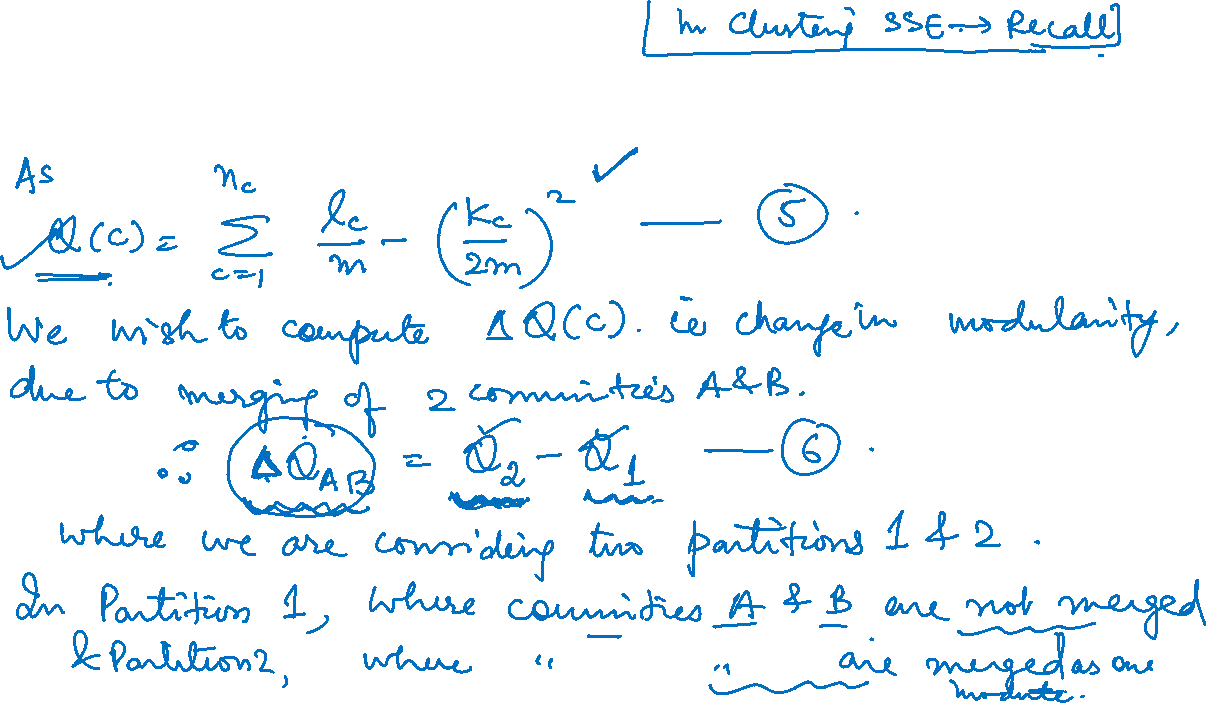 [In Clustering SSE → Recall]
As
Q(C) = \sum_{c=1}^{n_c} \frac{l_c}{m} - \left(\frac{k_c}{2m}\right)^2 ✓ — (5).
We wish to compute ΔQ(C). ie change in modularity,
due to merging of 2 communities A & B.
∴ ΔQ_{AB} = Q_2 - Q_1 — (6).
where we are considering two partitions 1 & 2.
In Partition 1, where communities A & B are not merged
& Partition 2, where " " are merged as one
module.